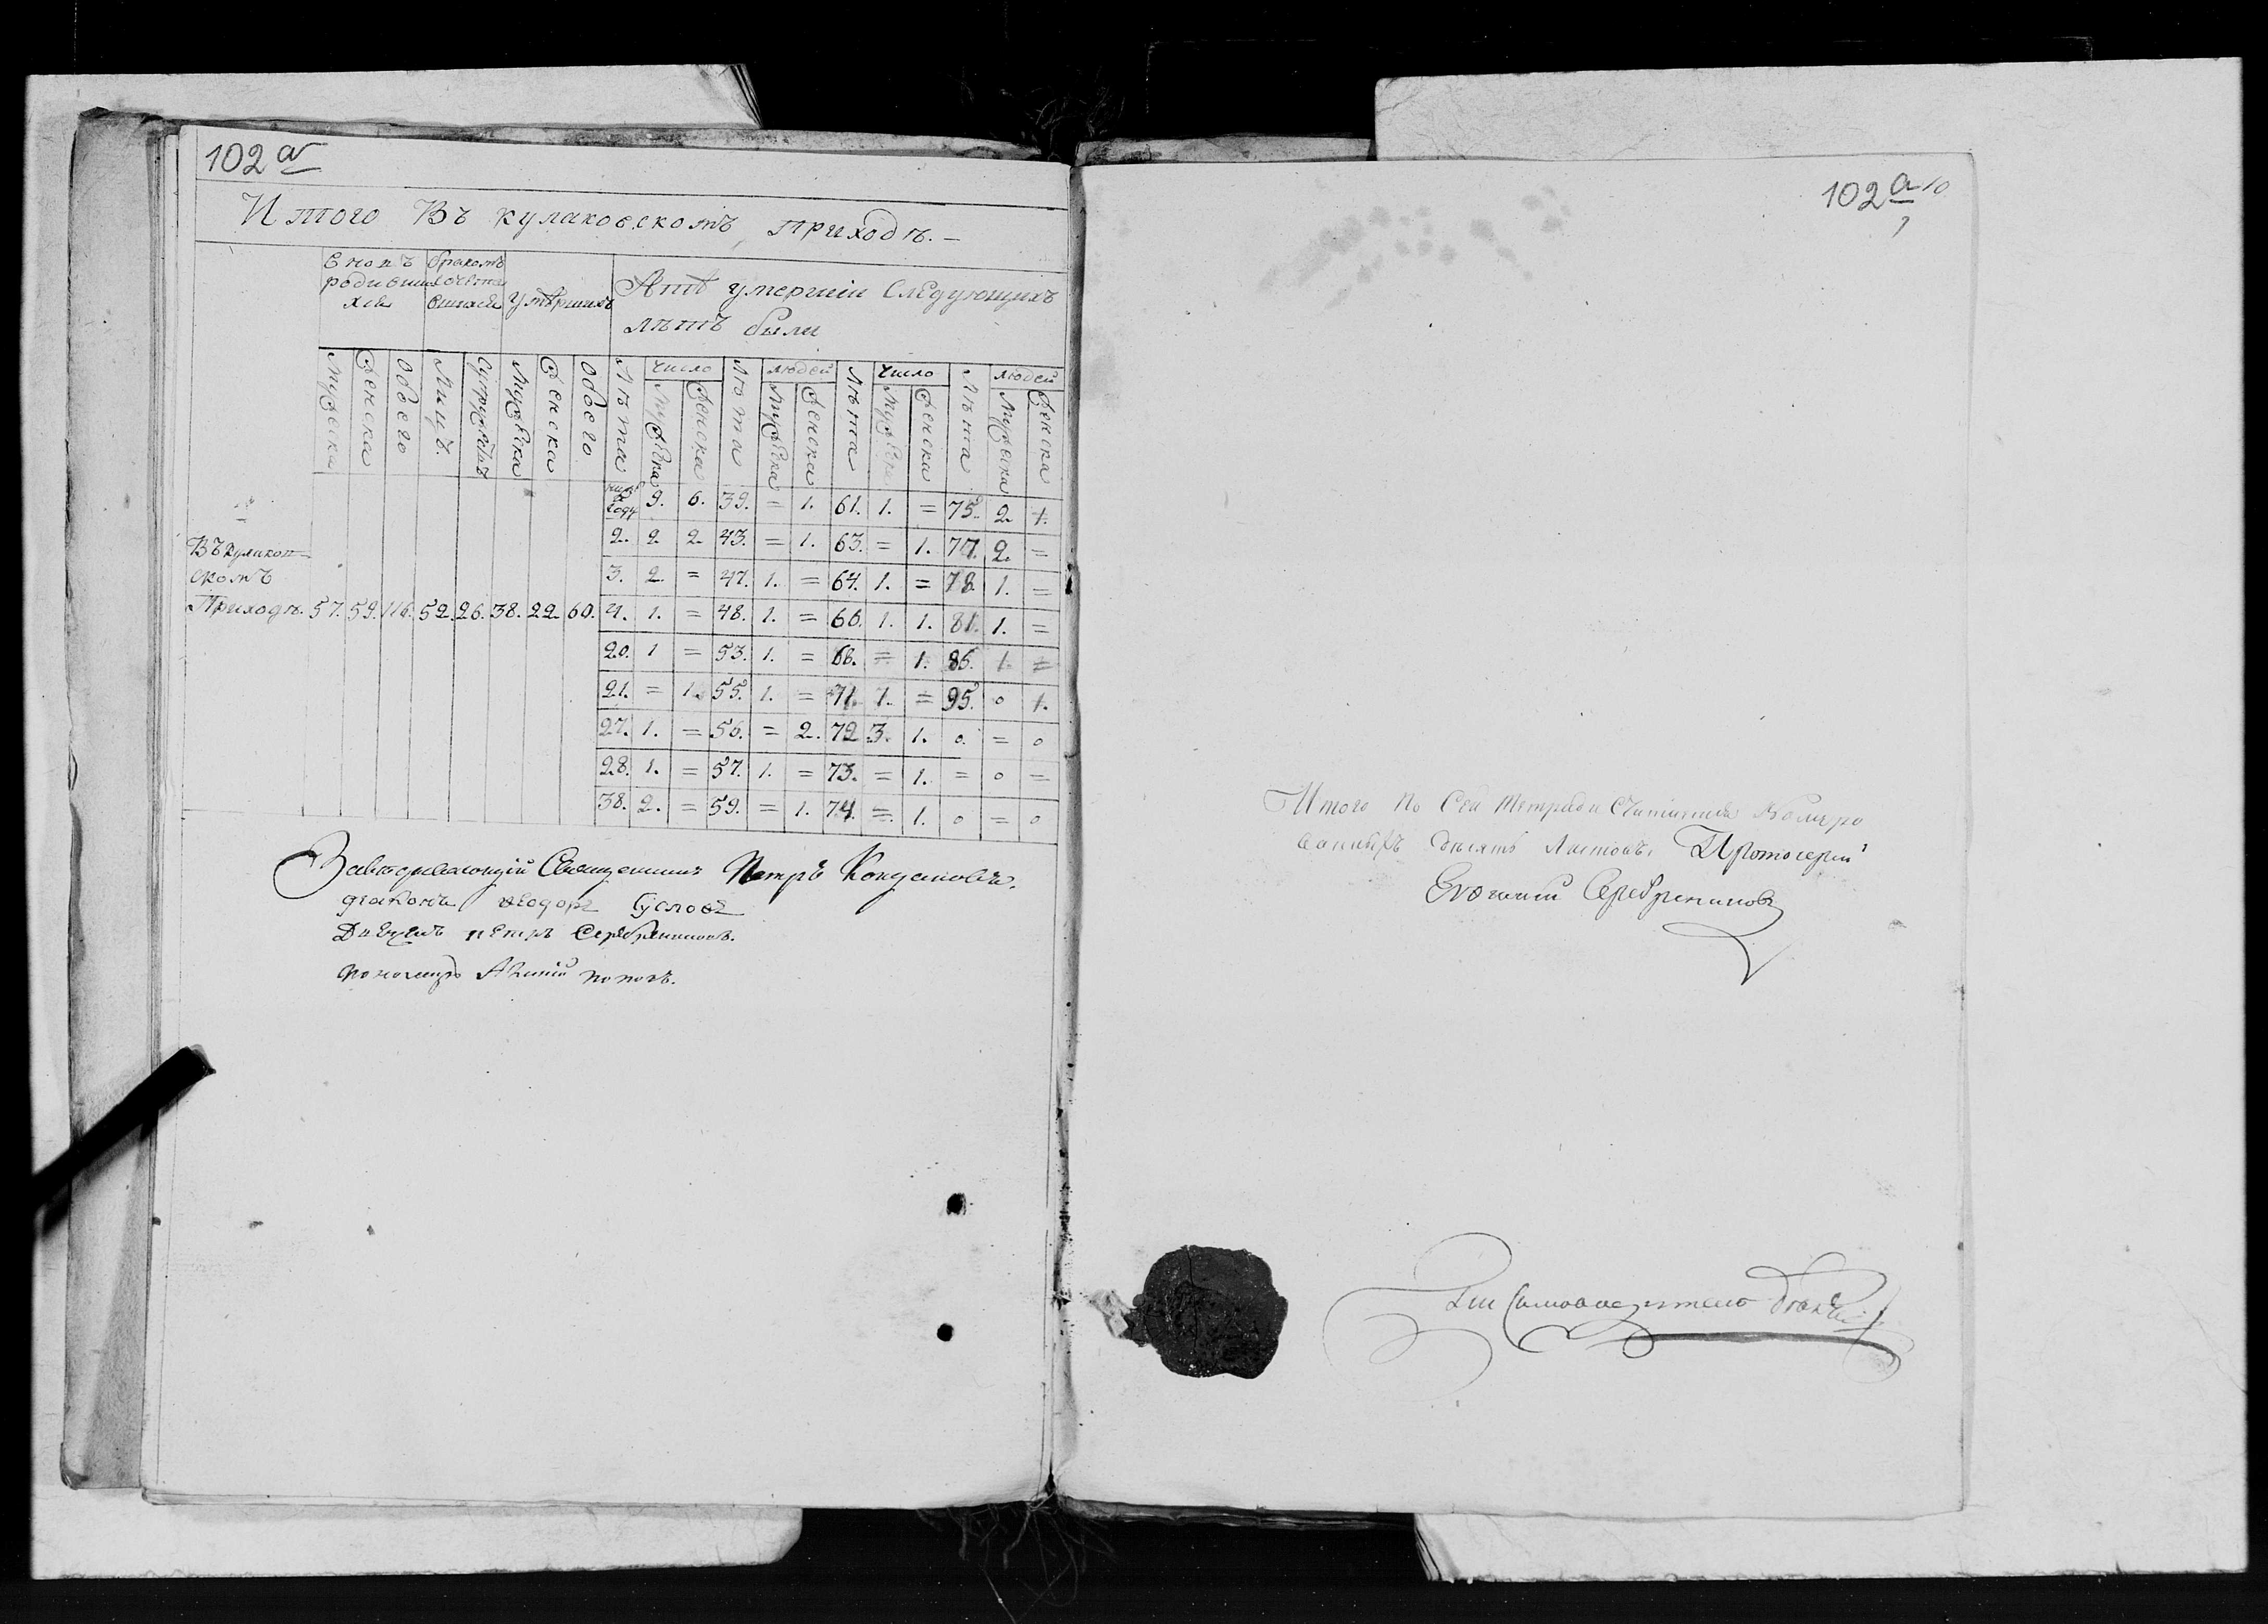 102 а
Итого Въ кулаковскомъ приходѣ. –
вновъ родившихся
бракомъ сочетавшихся
Умѣршихъ
Аитѣ умершіи Следующихъ
лѣтъ были
число людей число людей
Мужеска Женска Обоего Лицъ. Супружествъ Мужеска Женска Обоего Лѣта Мужеска Женска Лѣта Мужеска Женска Лѣта Мужеска Женска Лѣта Мужеска Женска
году 9. 6. 39. = 1. 61. 1. = 75. 2. 1.
2. 2 2 43. = 1. 63. = 1. 77. 2. =
3. 2. = 47. 1. = 64. 1. = 78. 1. =
Въ Кулаков=
скомъ
Приходѣ. 57. 59. 116. 52. 26. 38. 22. 60. 4. 1. = 48. 1. = 66. 1. 1. 81. 1. =
20. 1 = 53. 1. = 68. = 1. 86. 1. =
21. = 1. 55. 1. = 71. 1. = 95. 0 1.
27. 1. = 56. = 2. 72 3. 1. 0. = 0
28. 1. = 57. 1. = 73. = 1. = 0 =
38. 2. = 59. = 1. 74. = 1. 0 = 0
Священникъ Петръ Кондаковъ.
діаконъ Ѳеодоръ Сусловъ
Дьячекъ петръ Серебрениковъ.
пономарь поповъ.
102 а 10
Итого По Сей тетради Считается Номеро
ванныхъ десять Листовъ, Протоиерей
Серебрениковъ